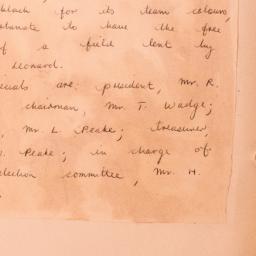 black for its team colours,
the free
of a field lent by
Leonard.
are: president, Mr. R.
chairman, Mr. T. Wadge;
, Mr. L. Peake; treasurer,
. Peake; in charge of
committee, Mr. H.